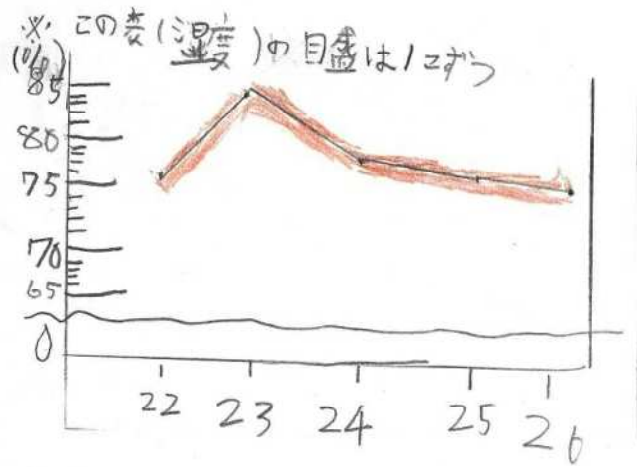 ※ この表(湿度)の目盛は1こずつ
(%)
85
80
75
70
65
0
22 23 24 25 26